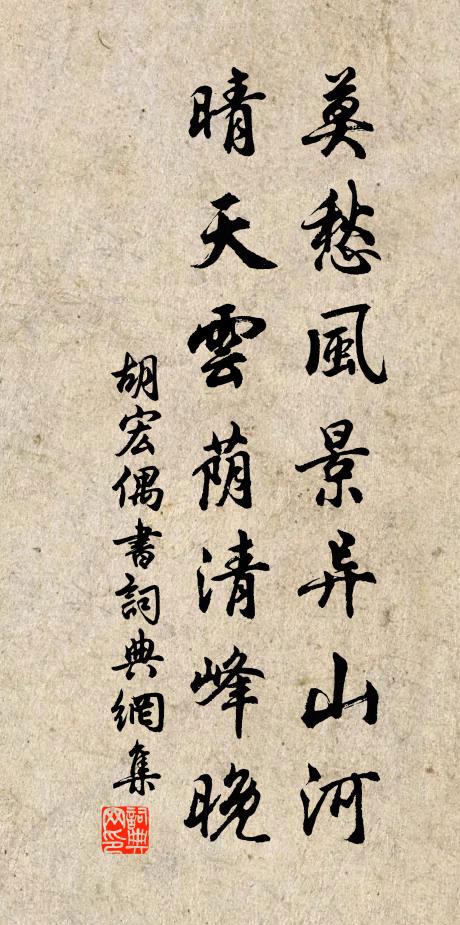 莫愁風景异山河
晴天雲蔭清峰晚
胡宏偶書詞典網集
詞典网印